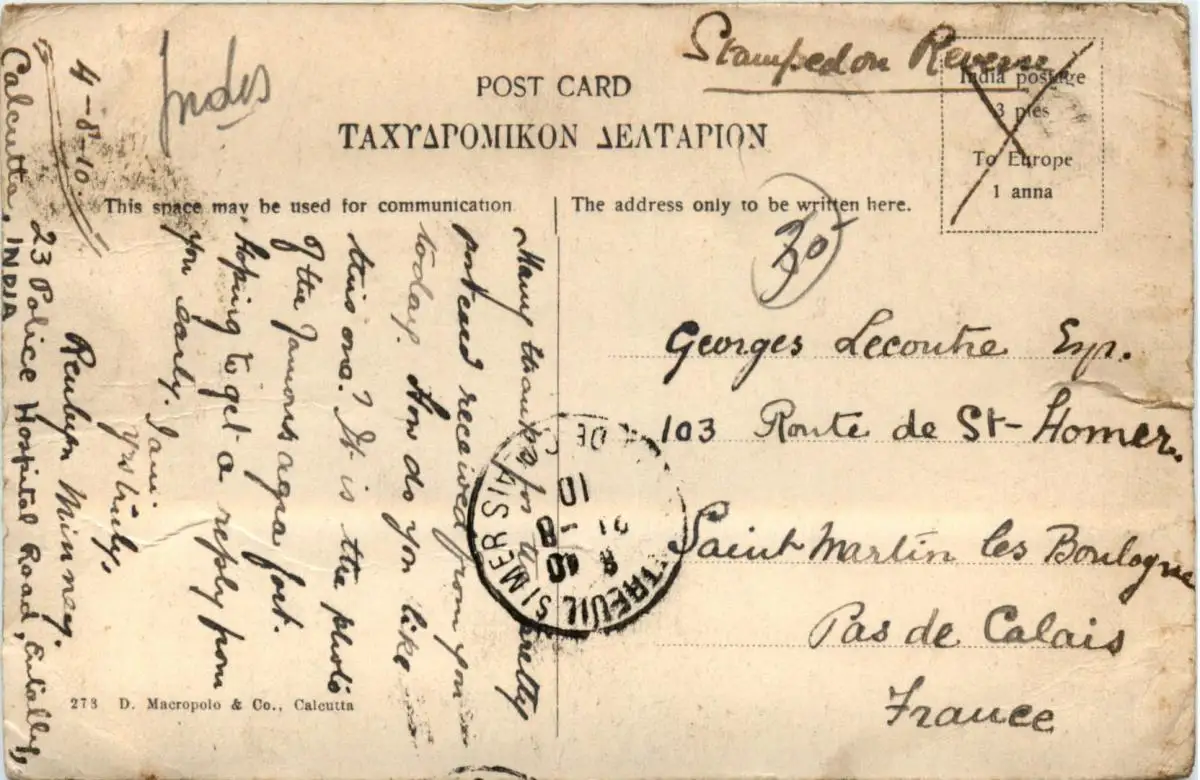 Stamped on Reverse
Indes
POST CARD
ΤΑΧΥΔΡΟΜΙΚΟΝ ΔΕΛΤΑΡΙΟΝ
India postage
3 pies
To Europe
1 anna
This space may be used for communication
The address only to be written here.
30
Georges Lecoutre Esq.
103 Route de St-Homer.
Saint Martin les Boulogne
Pas de Calais
France
4-8-10.
Many thanks for the pretty
post card received from you
today. How do you like
this one? It is the photo
of the famous agra fort.
Hoping to get a reply from
you early. I am
yrs truly,
Reuben Minney.
23 Police Hospital Road, Entally,
Calcutta, INDIA
TREUIL S/MER
P DE C
273 D. Macropolo & Co., Calcutta